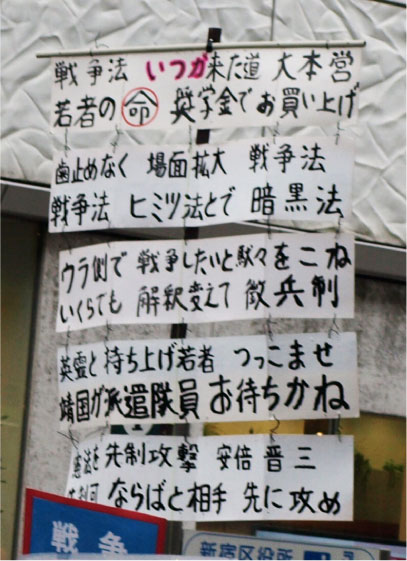 戦争法 いつか来た道 大本営
若者の命 奨学金でお買い上げ
歯止めなく 場面拡大 戦争法
戦争法 ヒミツ法とで 暗黒法
ウラ側で 戦争したいと駄々をこね
いくらでも 解釈変えて 徴兵制
英霊と持ち上げ若者 つっこませ
靖国が派遣隊員 お待ちかね
憲法を 先制攻撃 安倍晋三
ならばと相手 先に攻め
戦争
新宿区役所